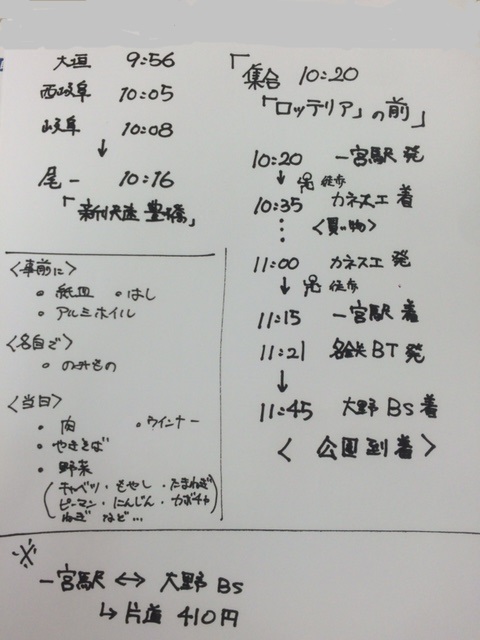 大垣 9:56
西岐阜 10:05
岐阜 10:08
↓
尾一 10:16
「新快速 豊橋」
「集合 10:20
「ロッテリア」の前」
10:20 一宮駅 発
↓ 徒歩
10:35 カネスエ 着
<買い物>
11:00 カネスエ 発
↓ 徒歩
11:15 一宮駅 着
11:21 名鉄BT 発
↓
11:45 大野Bs着
<公園到着>
<事前に>
・紙皿 ・はし
・アルミホイル
<各自で>
・のみもの
<当日>
・肉 ・ウインナー
・やきそば
・野菜
(キャベツ・もやし・たまねぎ
ピーマン・にんじん・カボチャ
ねぎ など…)
※
一宮駅 ↔ 大野Bs
↳ 片道 410円